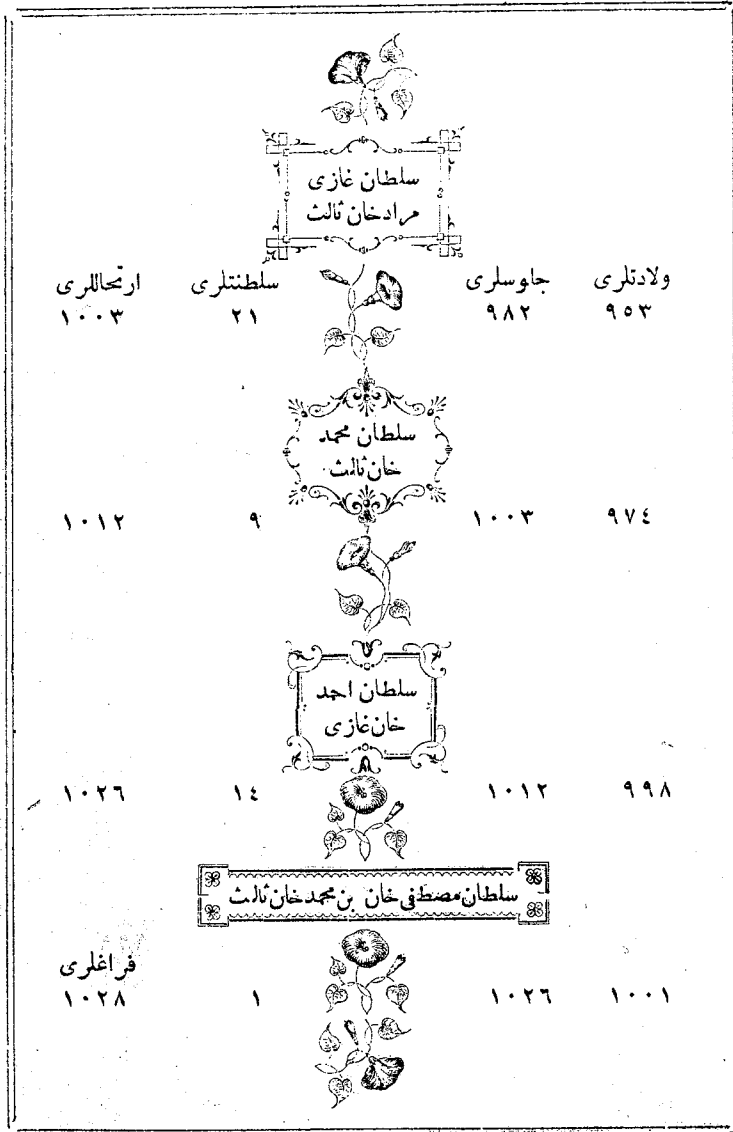 سلطان غازی
مراد خان ثالث
ولادتلری جلوسلری سلطنتلری ارتحاللری
٩٥٣ ٩٨٢ ٢١ ١٠٠٣
سلطان محمد
خان ثالث
٩٧٤ ١٠٠٣ ٩ ١٠١٢
سلطان احمد
خان غازی
٩٩٨ ١٠١٢ ١٤ ١٠٢٦
سلطان مصطفی خان بن محمد خان ثالث
فراغلری
١٠٠١ ١٠٢٦ ١ ١٠٢٨